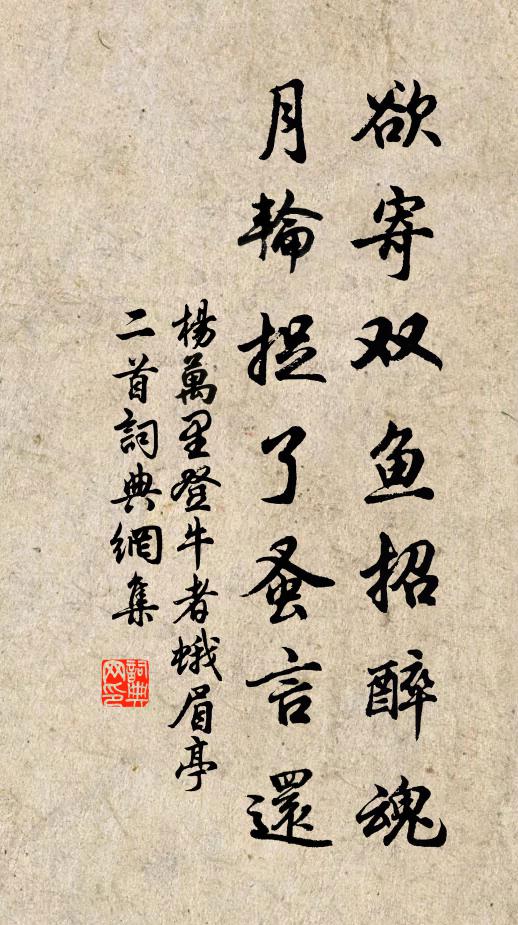 欲寄双鱼招醉魂
月輪捉了蚤言還
楊萬里登牛者蛾眉亭
二首詞典網集
詞典
网印